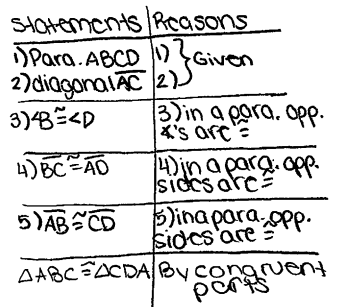 Statements Reasons
1) Para. ABCD 1) } Given
2) diagonal AC 2)
3) ∢B ≅ ∢D 3) in a para. opp.
∡'s are ≅
4) BC ≅ AD 4) in a para. opp.
sides are ≅
5) AB ≅ CD 5) in a para. opp.
sides are ≅
△ABC ≅ △CDA By congruent
parts